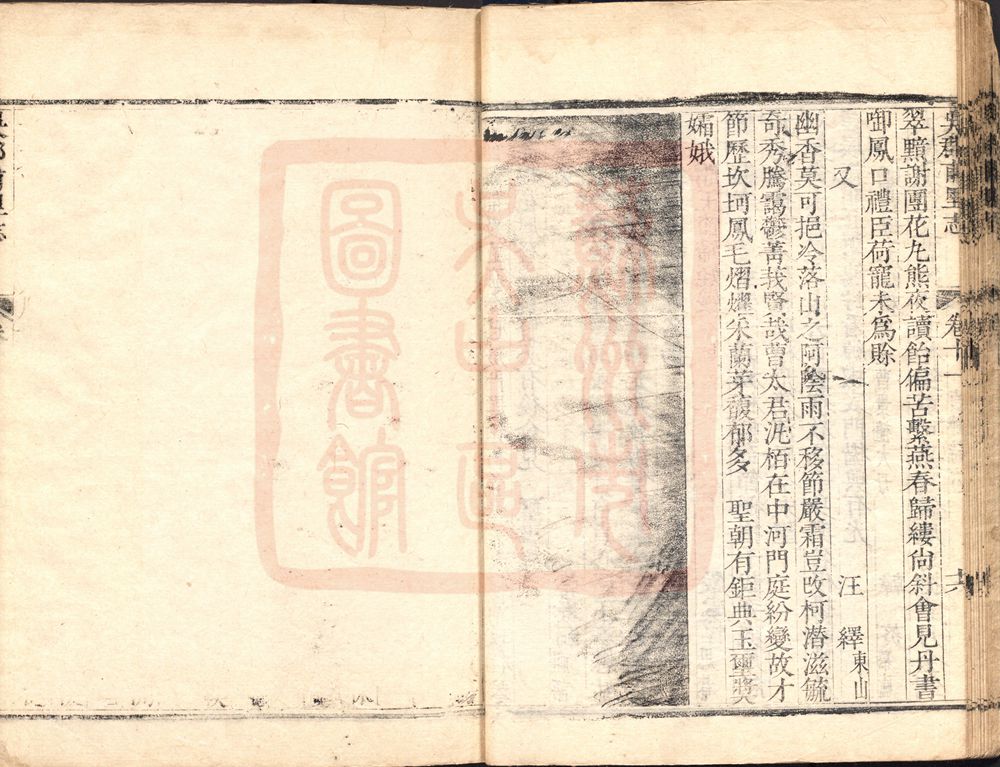 吳郡甫里志 卷十一 六
翠黯謝團花九熊夜讀飴偏苦繫燕春歸縷尙斜會見丹書
啣鳳口禮臣荷寵未爲賒
又 汪繹東山
幽香莫可挹冷落山之阿陰雨不移節嚴霜豈改柯潛滋毓
奇秀騰靄鬱菁莪賢哉曹太君汎栢在中河門庭紛變故才
節歷坎坷鳳毛熠燿采蘭芽馥郁多 聖朝有鉅典玉璽獎
孀娥
蘇州市
吳中區
圖書館